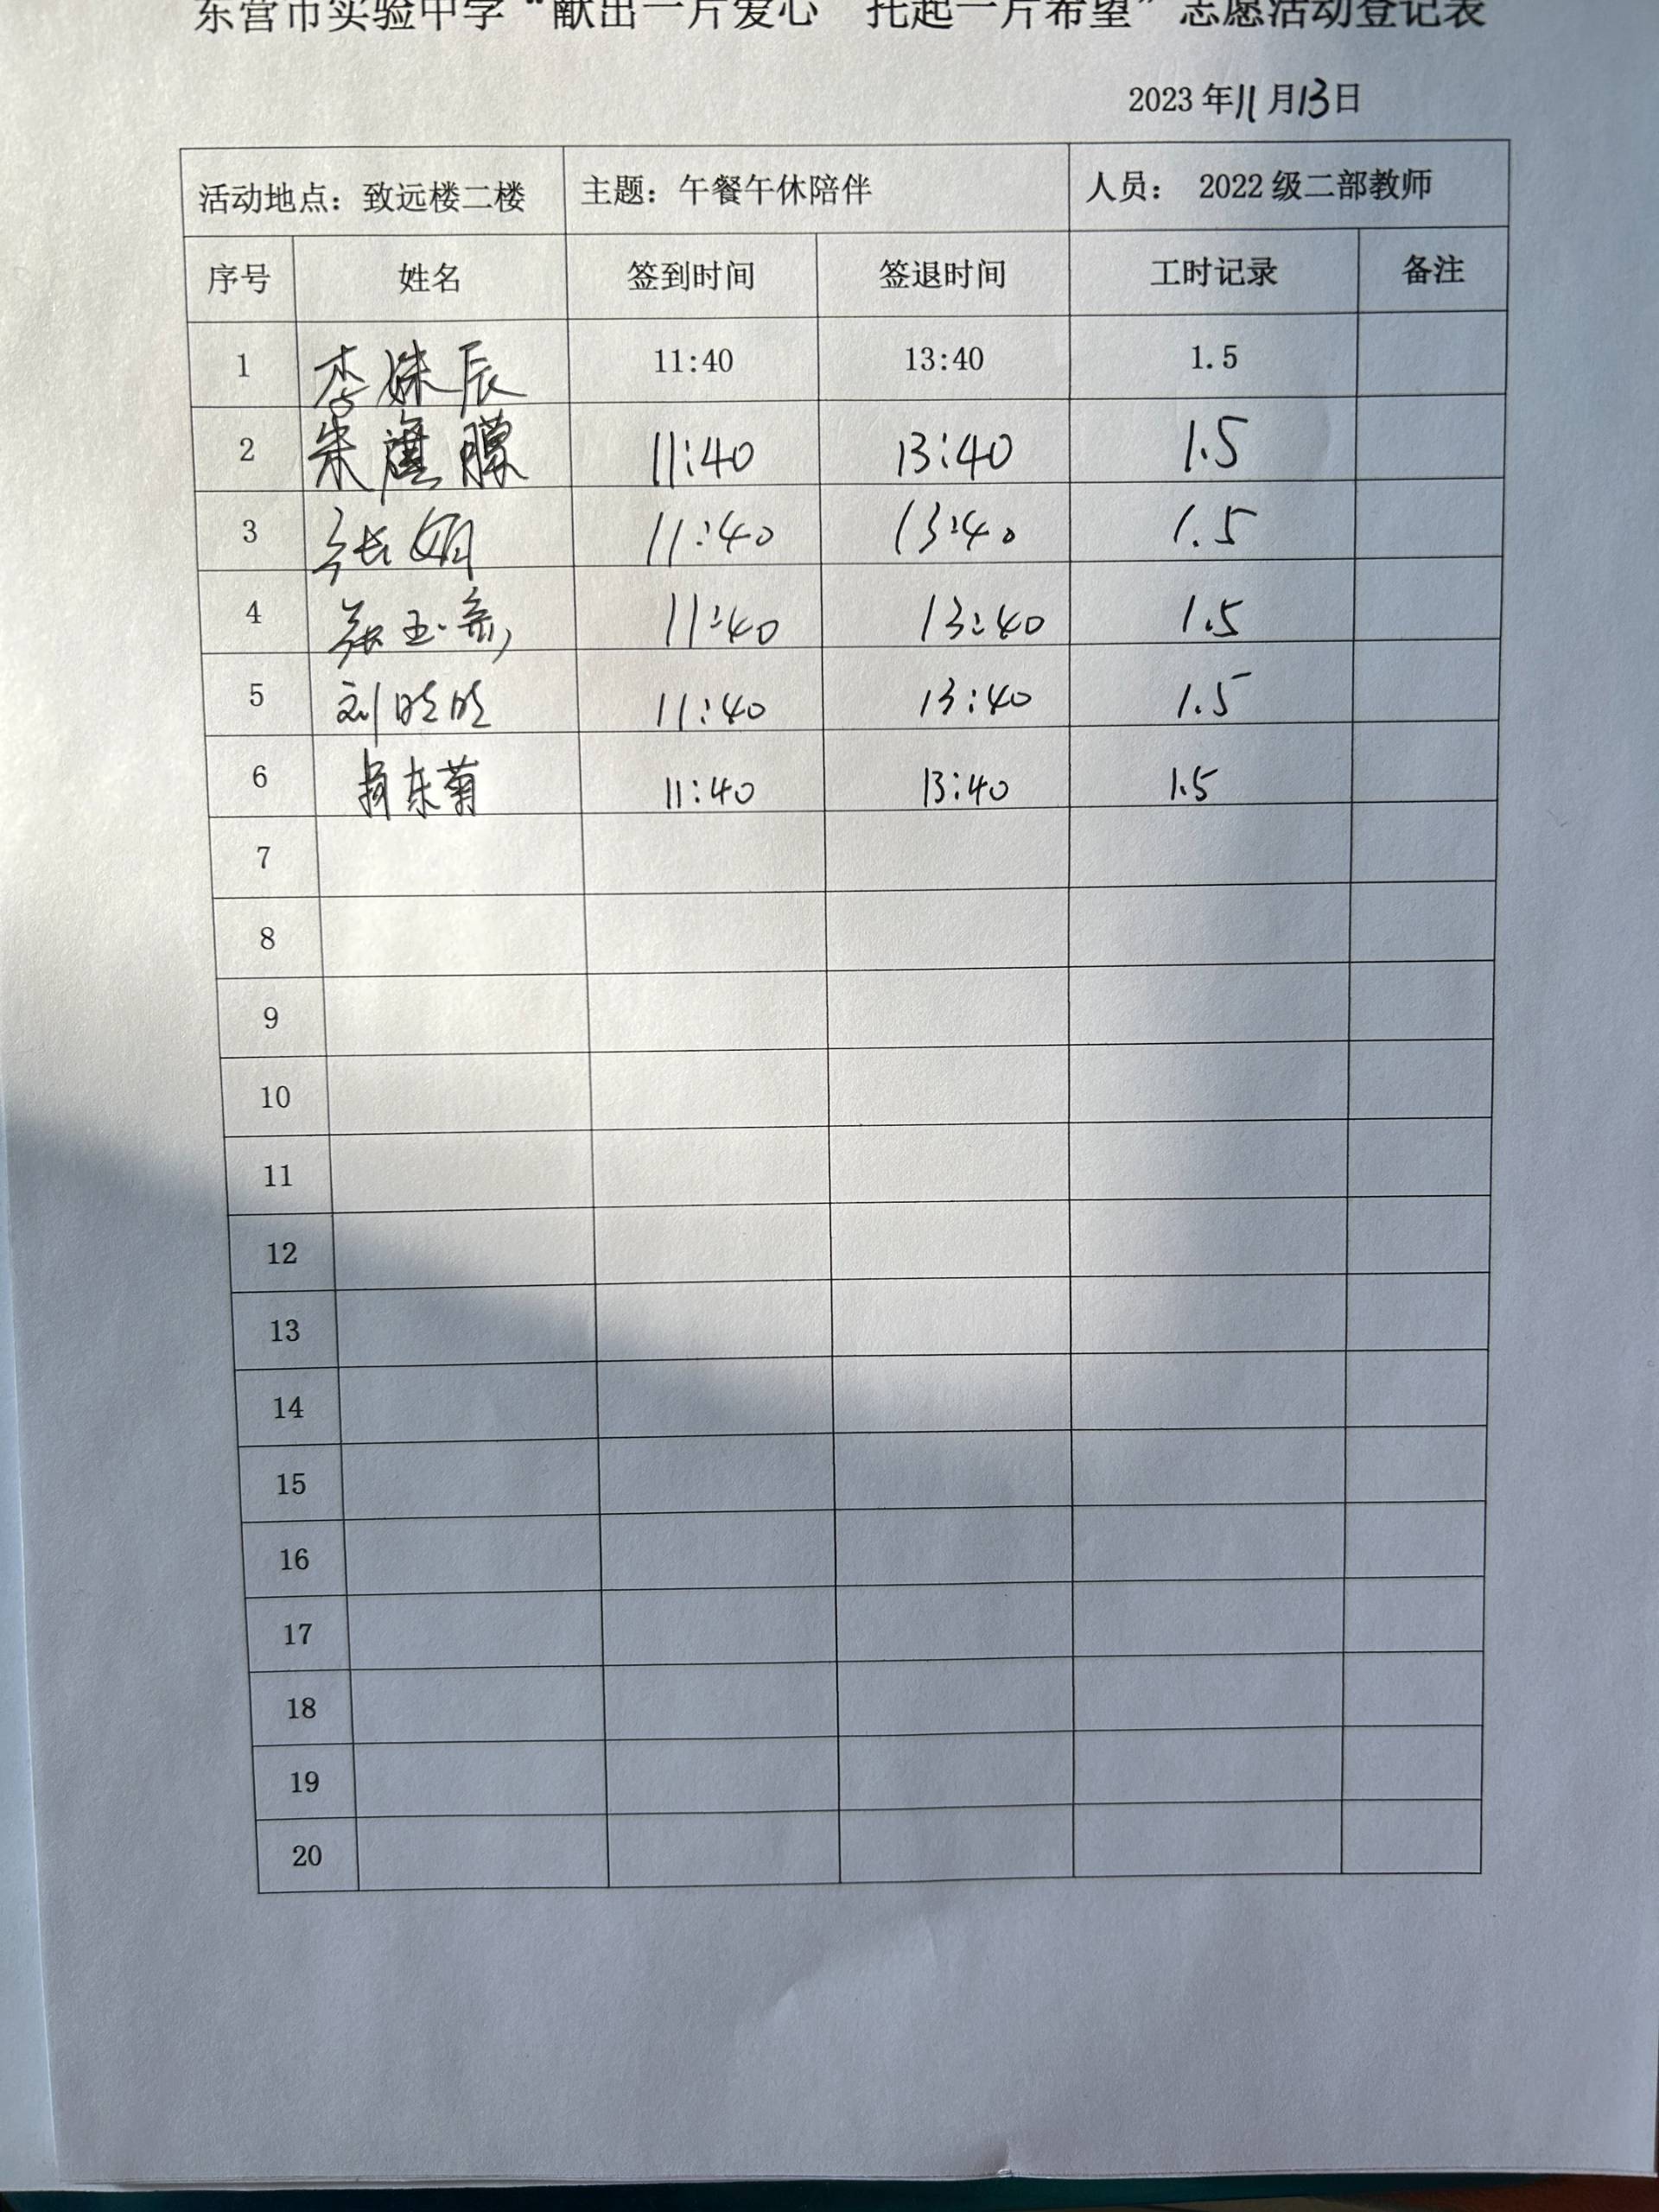 东营市实验中学“献出一片爱心 托起一片希望”志愿活动登记表
2023 年 11 月 13 日
活动地点：致远楼二楼 主题：午餐午休陪伴 人员： 2022 级二部教师
序号 姓名 签到时间 签退时间 工时记录 备注
1 李姝辰 11:40 13:40 1.5
2 朱 朦 11:40 13:40 1.5
3 张娟 11:40 13:40 1.5
4 张玉 11:40 13:40 1.5
5 刘晓晓 11:40 13:40 1.5
6 东菊 11:40 13:40 1.5
7
8
9
10
11
12
13
14
15
16
17
18
19
20